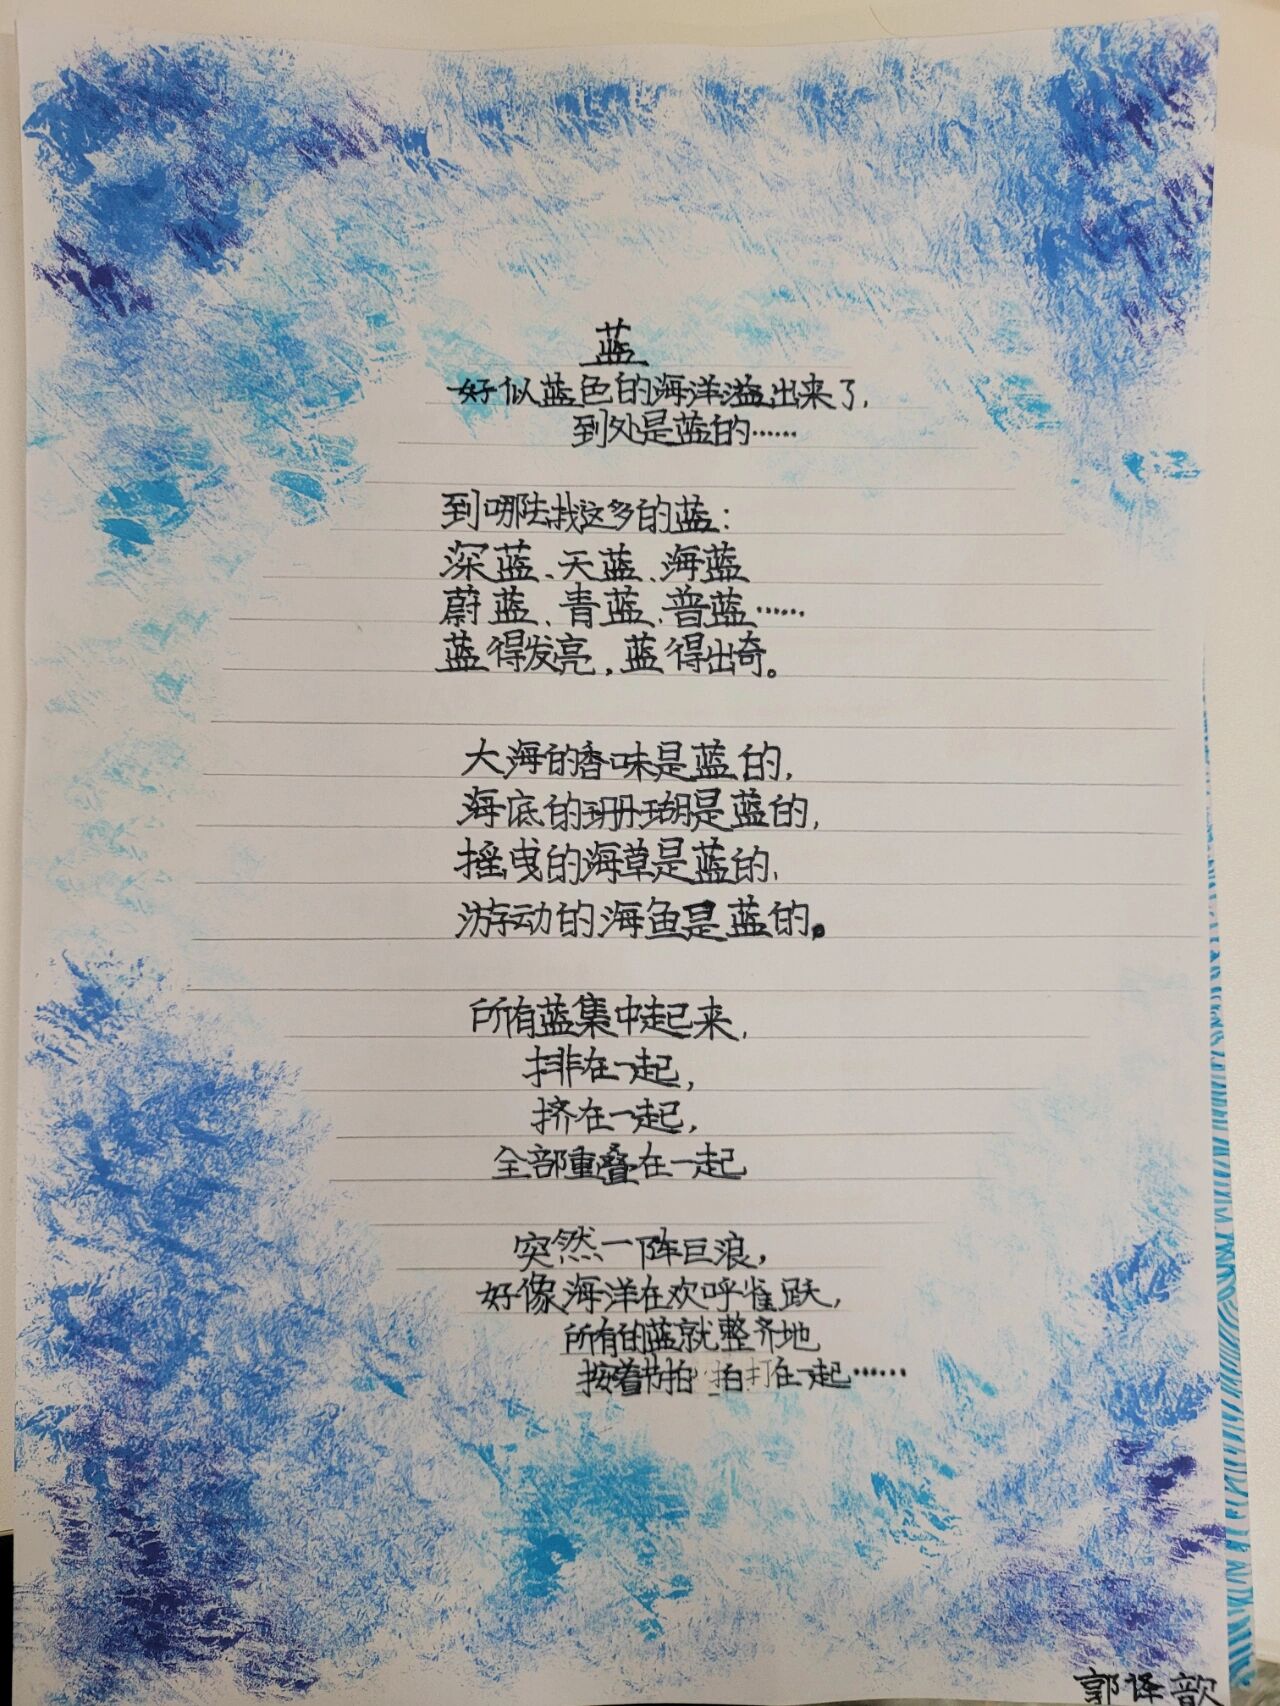 蓝
好似蓝色的海洋溢出来了,
到处是蓝的……
到哪去找这多的蓝:
深蓝、天蓝、海蓝
蔚蓝、青蓝、普蓝……
蓝得发亮,蓝得出奇。
大海的香味是蓝的,
海底的珊瑚是蓝的,
摇曳的海草是蓝的,
游动的海鱼是蓝的。
所有蓝集中起来,
排在一起,
挤在一起,
全部重叠在一起
突然一阵巨浪,
好像海洋在欢呼雀跃,
所有的蓝就整齐地
按着节拍 拍打在一起……
郭译歆